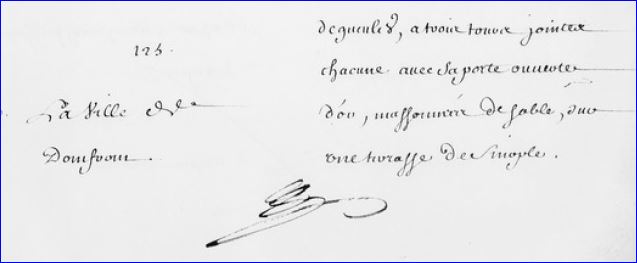 125.
La Ville de
Domfront.
de gueules, a trois tours jointes
chacune avec sa porte ouverte
d'or, massonnées de sable, sur
une terrasse de sinople.